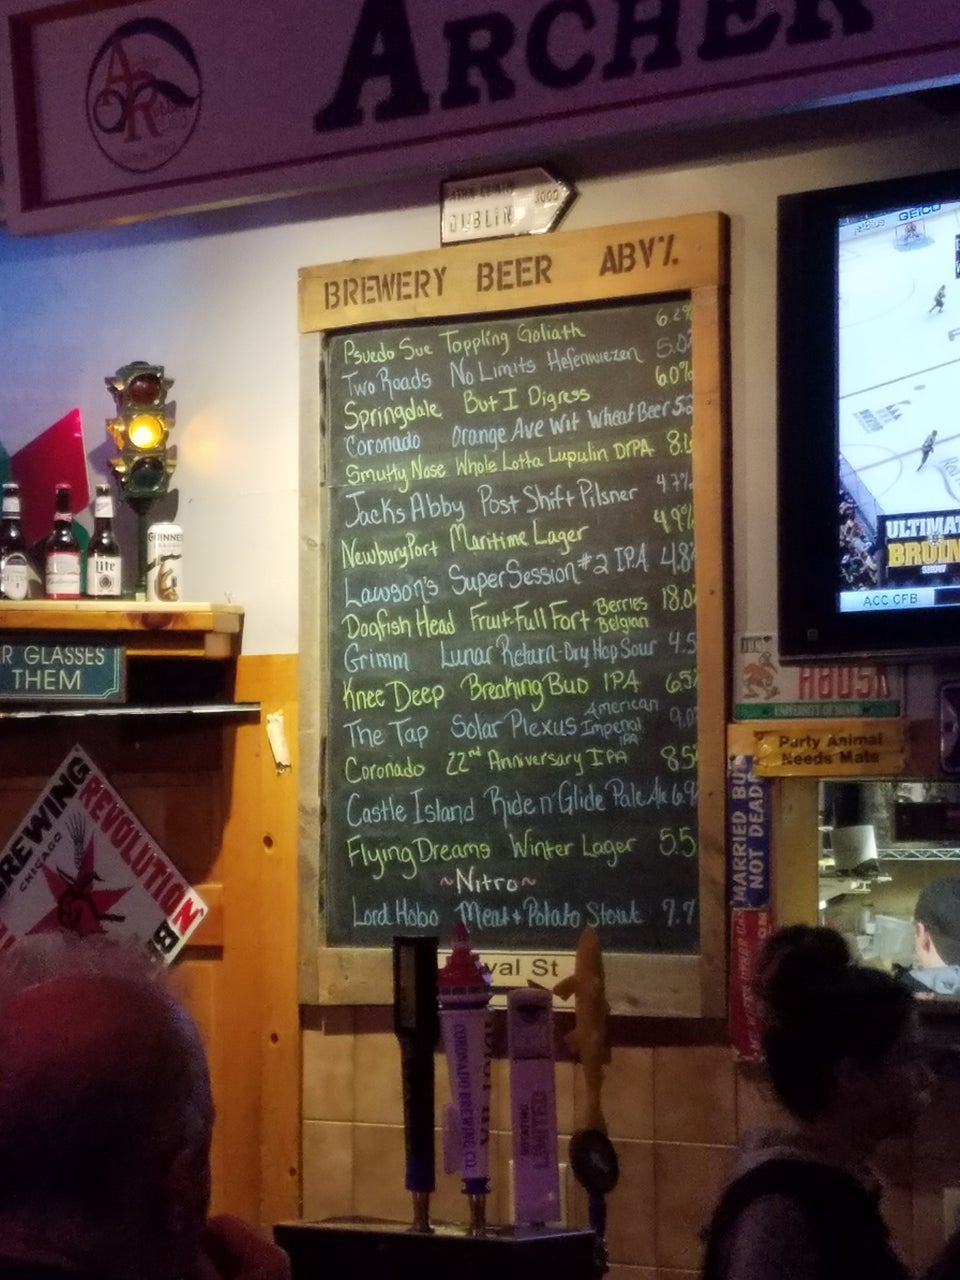 ARCHER
DUBLIN
3000
BREWERY BEER ABV%
Psuedo Sue Toppling Goliath 6.2%
Two Roads No Limits Hefenwiezen 5.0%
Springdale But I Digress 6.0%
Coronado Orange Ave Wit Wheat Beer 5.2
Smutty Nose Whole Lotta Lupulin DIPA 8.
Jacks Abby Post Shift Pilsner 4.7%
NewburyPort Maritime Lager 4.9%
Lawson's SuperSession #2 IPA 4.8
Dogfish Head Fruit-Full Fort Berries Belgian 18.0
Grimm Lunar Return-Dry Hop Sour 4.5
Knee Deep Breaking Bud IPA 6.5%
The Tap Solar Plexus American Imperial IPA 9.0
Coronado 22nd Anniversary IPA 8.5
Castle Island Ride n' Glide Pale Ale 6.9%
Flying Dreams Winter Lager 5.5
~Nitro~
Lord Hobo Meat + Potato Stout 7.7
val St
GEICO
ULTIMATE
BRUIN
SHOW
ACC CFB
GUINNESS
Lite
R GLASSES
THEM
BREWING
CHICAGO
REVOLUTION
Party Animal
Needs Mate
MARRIED BUT
NOT DEAD
CORONADO BREWING CO.
LIMITED